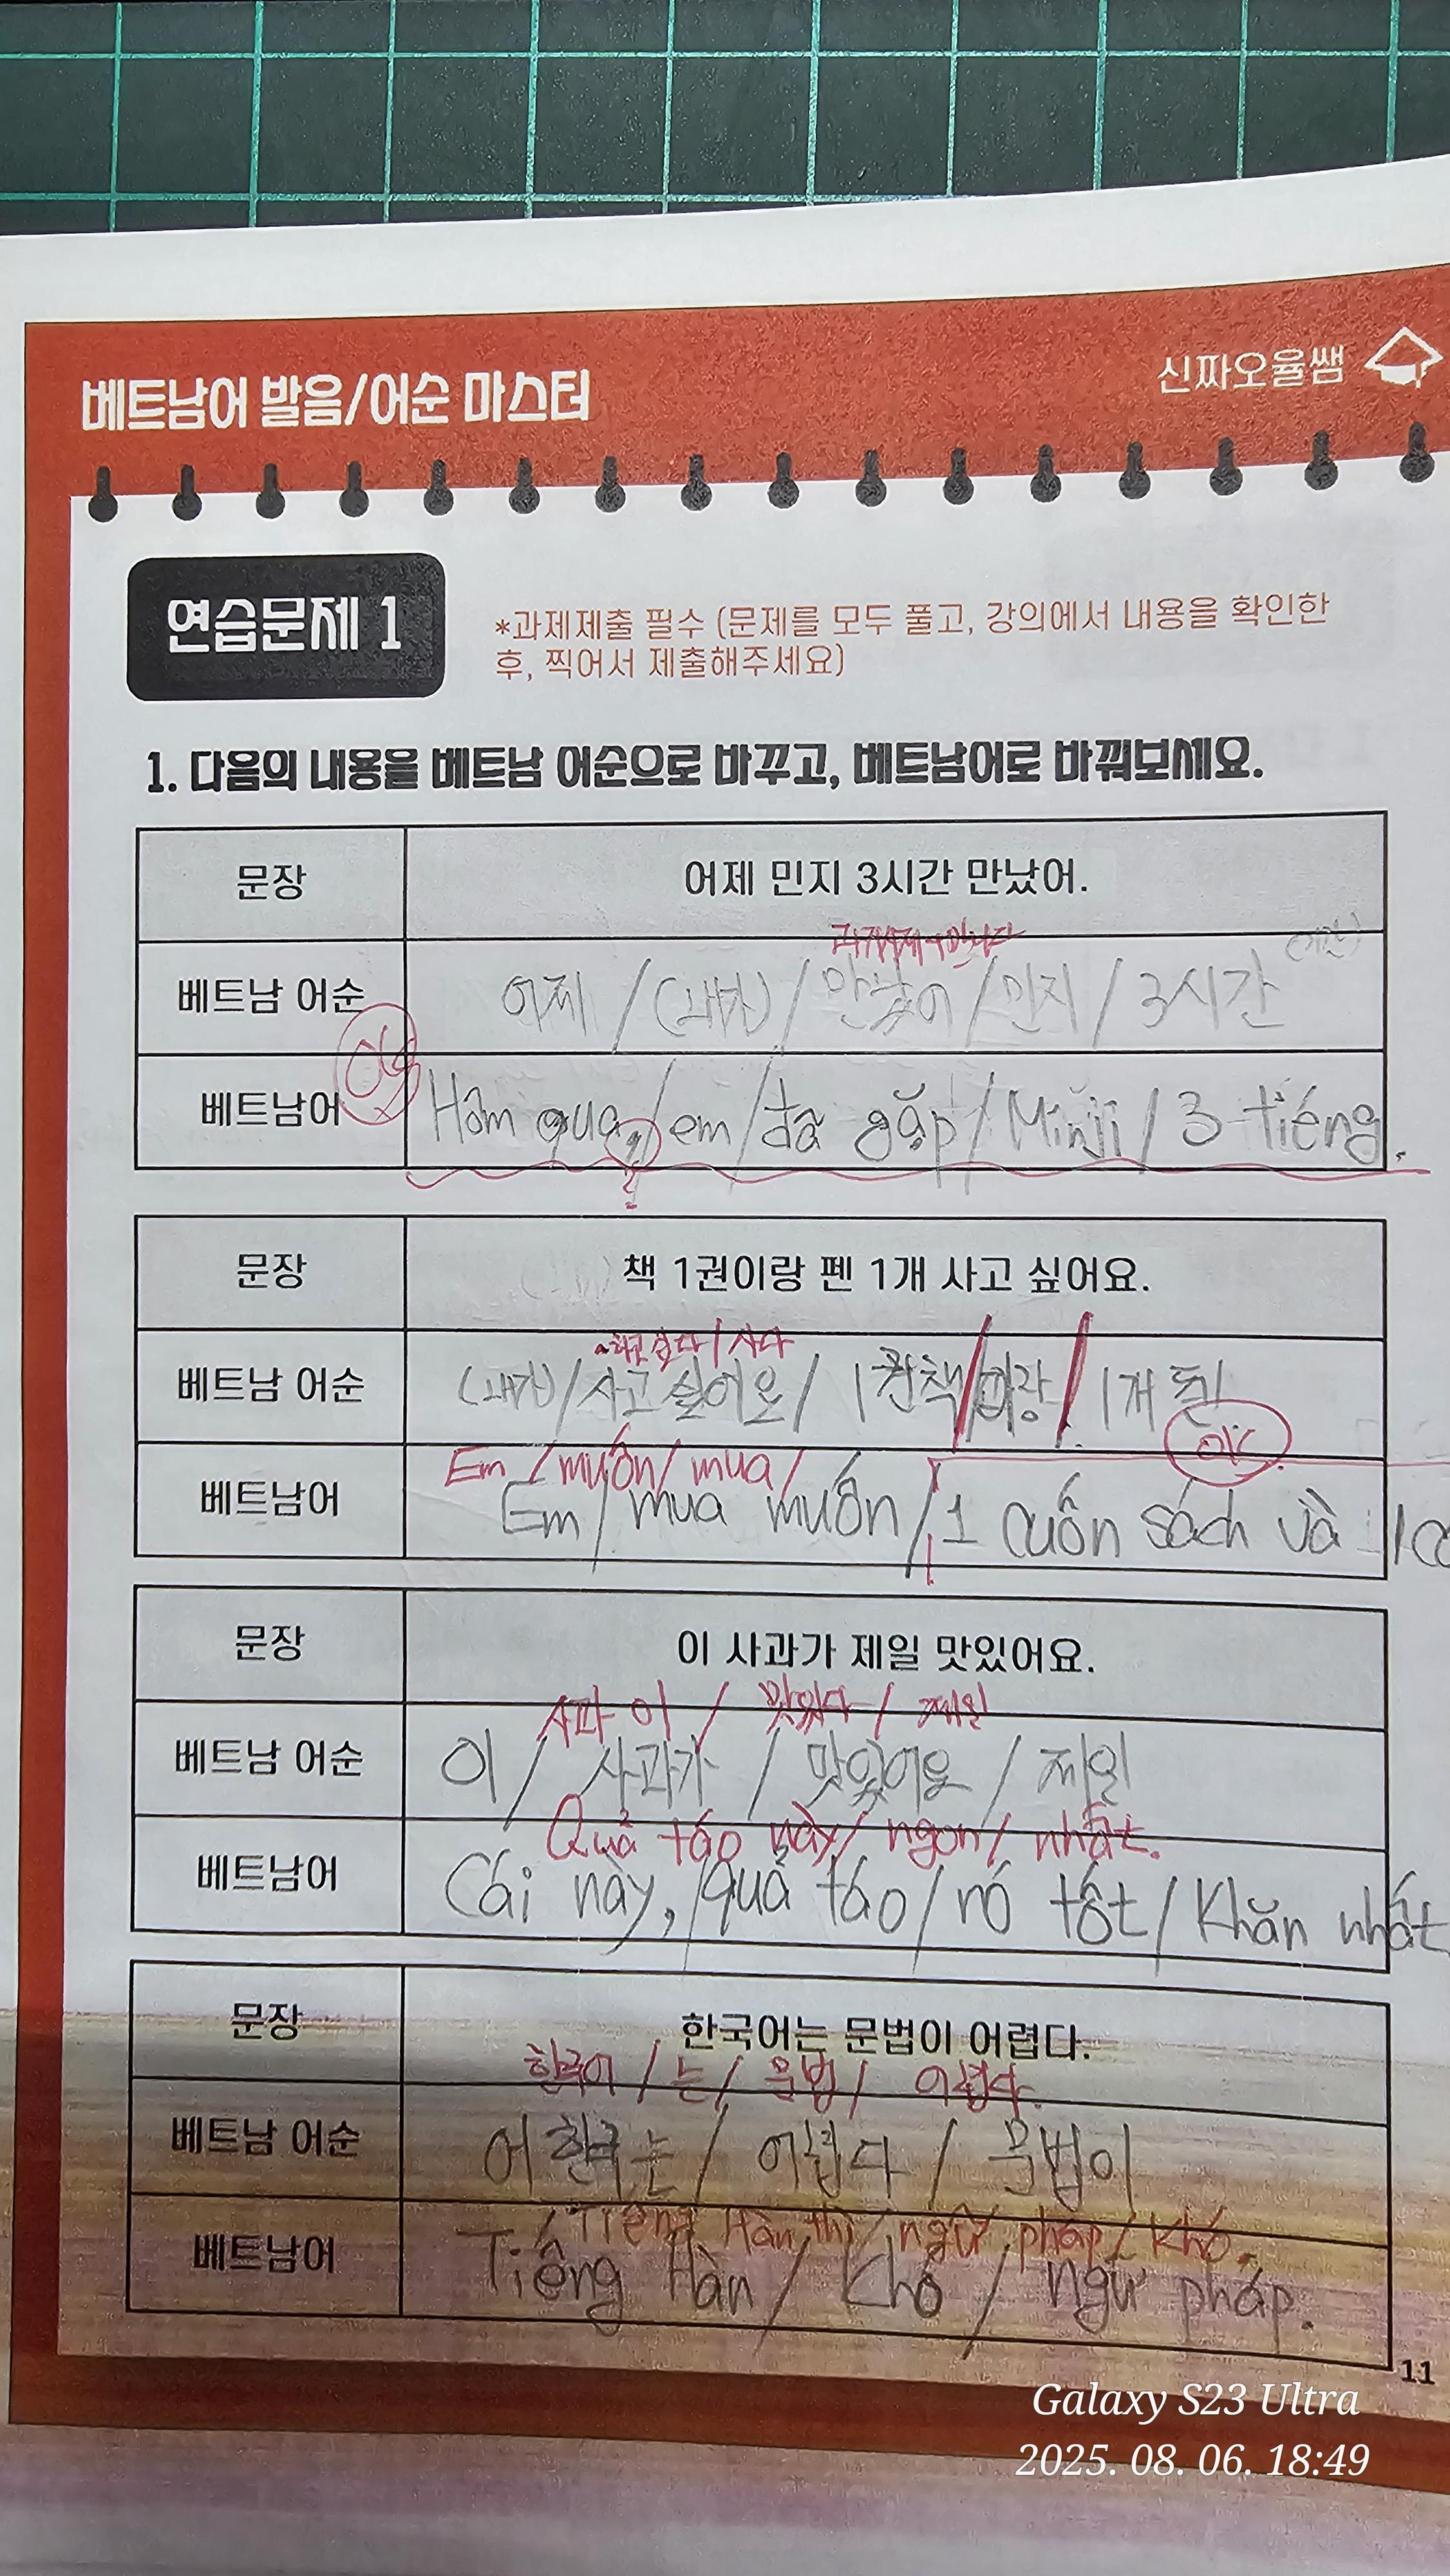 베트남어 발음/어순 마스터
신짜오율쌤
연습문제 1
*과제제출 필수 (문제를 모두 풀고, 강의에서 내용을 확인한
후, 찍어서 제출해주세요)
1. 다음의 내용을 베트남 어순으로 바꾸고, 베트남어로 바꿔보세요.
문장
어제 민지 3시간 만났어.
과거시제+만나다
베트남 어순
어제 / (내가) / 만났어 / 민지 / 3시간
OK
베트남어
Hôm qua, / em / đã gặp / Minji / 3 tiếng.
?
문장
책 1권이랑 펜 1개 사고 싶어요.
~하고 싶다 / 사다
베트남 어순
(내가) / 사고 싶어요 / 1권 책 / 이랑 / 1개 펜
OK
Em / muốn / mua /
베트남어
Em / mua muốn / 1 cuốn sách và 1
문장
이 사과가 제일 맛있어요.
사과 이 / 맛있다 / 제일
베트남 어순
이 / 사과가 / 맛있어요 / 제일
Quả táo này / ngon / nhất.
베트남어
Cái này, / quả táo / nó tốt / Khăn nhất
문장
한국어는 문법이 어렵다.
한국어 / 는 / 문법 / 어렵다.
베트남 어순
어 한국는 / 어렵다 / 문법이
/ Tiếng Hàn thì / ngữ pháp / khó.
베트남어
Tiếng Hàn / Khó / ngữ pháp.
11
Galaxy S23 Ultra
2025. 08. 06. 18:49